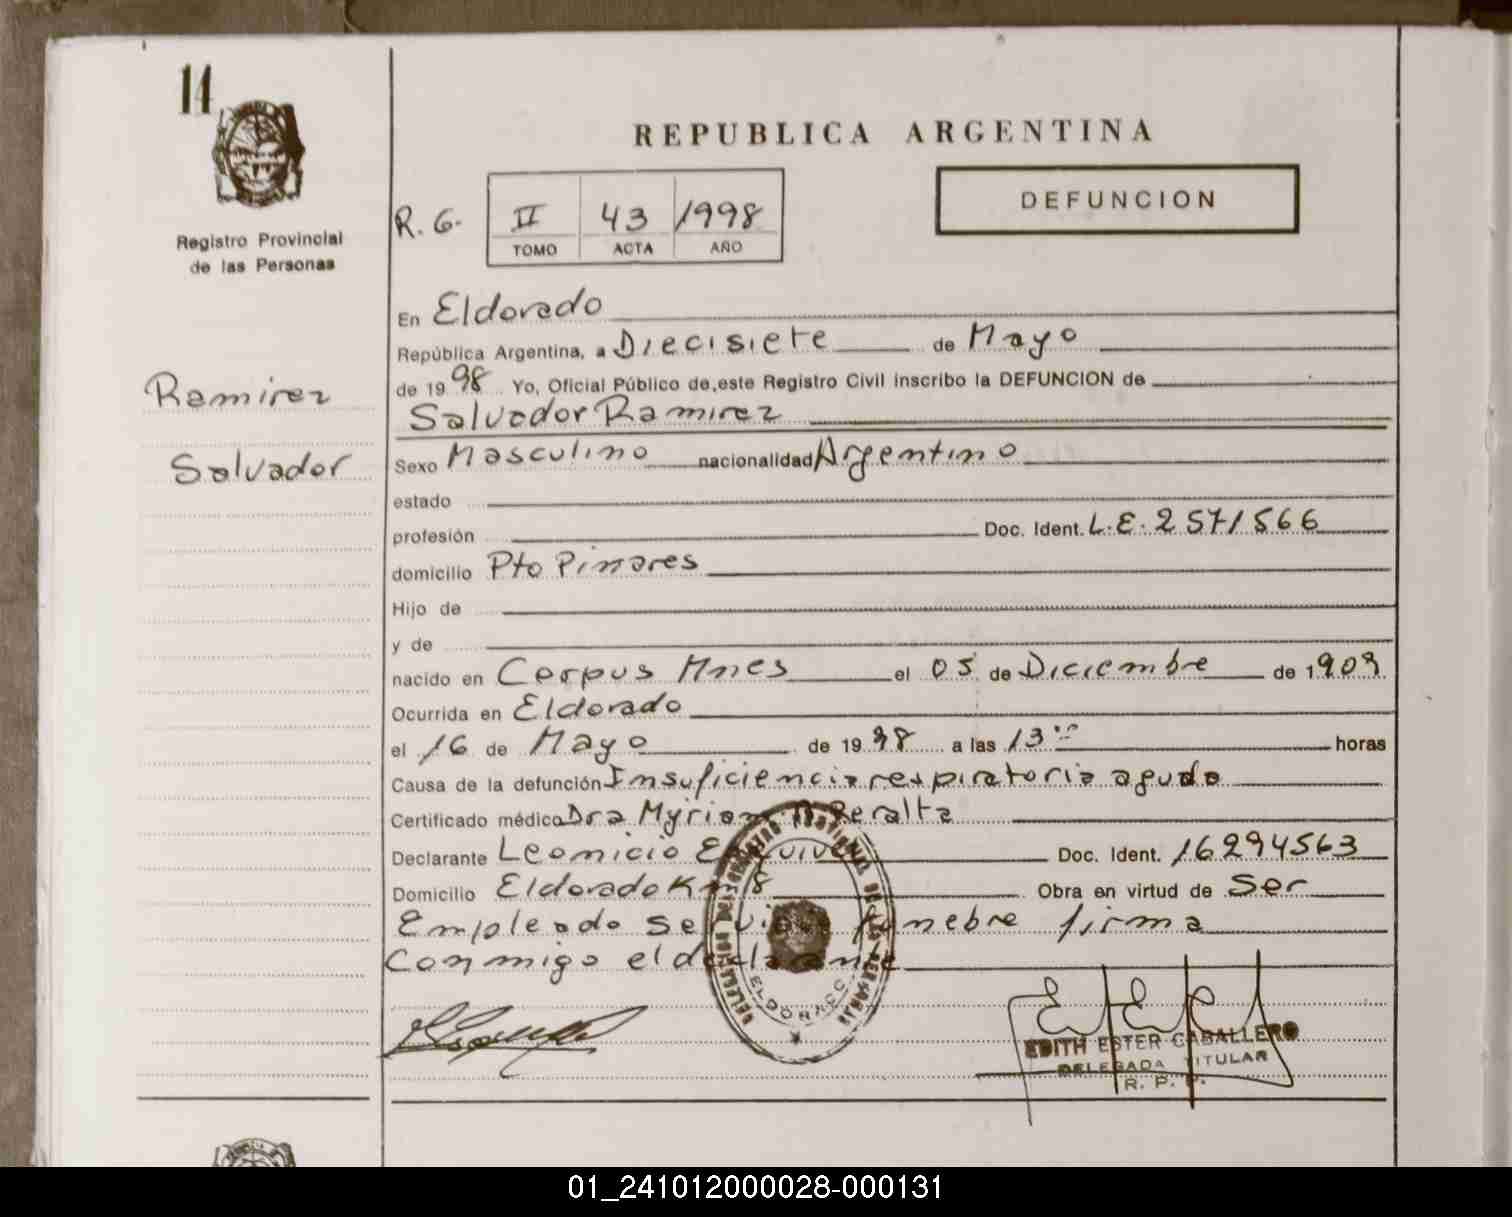 14
REPUBLICA ARGENTINA
DEFUNCION
Registro Provincial
de las Personas
R. G. II 43 1998
TOMO ACTA AÑO
Ramirez
Salvador
En Eldorado
República Argentina, a Diecisiete de Mayo
de 1998 Yo, Oficial Público de este Registro Civil inscribo la DEFUNCION de
Salvador Ramirez
Sexo Masculino nacionalidad Argentino
estado
profesión Doc. Ident. L.E. 2571566
domicilio Pto Pinares
Hijo de
y de
nacido en Corpus Mnes el 05 de Diciembre de 1909
Ocurrida en Eldorado
el 16 de Mayo de 1998 a las 13 horas
Causa de la defunción Insuficiencia respiratoria aguda
Certificado médico Dra Myriam Peralta
Declarante Leonicio Doc. Ident. 16294563
Domicilio Eldorado Km 8 Obra en virtud de Ser
Empleado servicio funebre firma
Conmigo el declarante
DELEGACION DEL REGISTRO PROVINCIAL DE LAS PERSONAS
ELDORADO
EDITH ESTER CABALLERO
DELEGADA TITULAR
R. P. P.
01_241012000028-000131